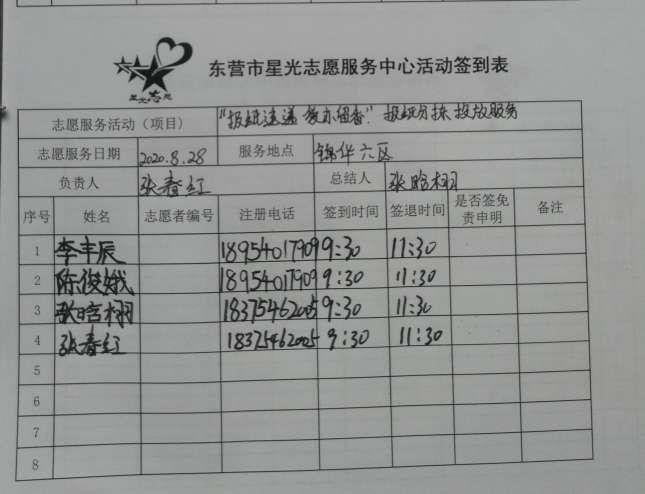 星光志愿
东营市星光志愿服务中心活动签到表
志愿服务活动（项目） "报纸速递 爱永留香" 报纸分拣投放服务
志愿服务日期 2020.8.28 服务地点 锦华六区
负责人 张春红 总结人 张晗栩
序号 姓名 志愿者编号 注册电话 签到时间 签退时间 是否签免责申明 备注
1 李丰辰 18954017909 9:30 11:30
2 陈俊娥 18954017909 9:30 11:30
3 张晗栩 18375462005 9:30 11:30
4 张春红 18375462005 9:30 11:30
5
6
7
8